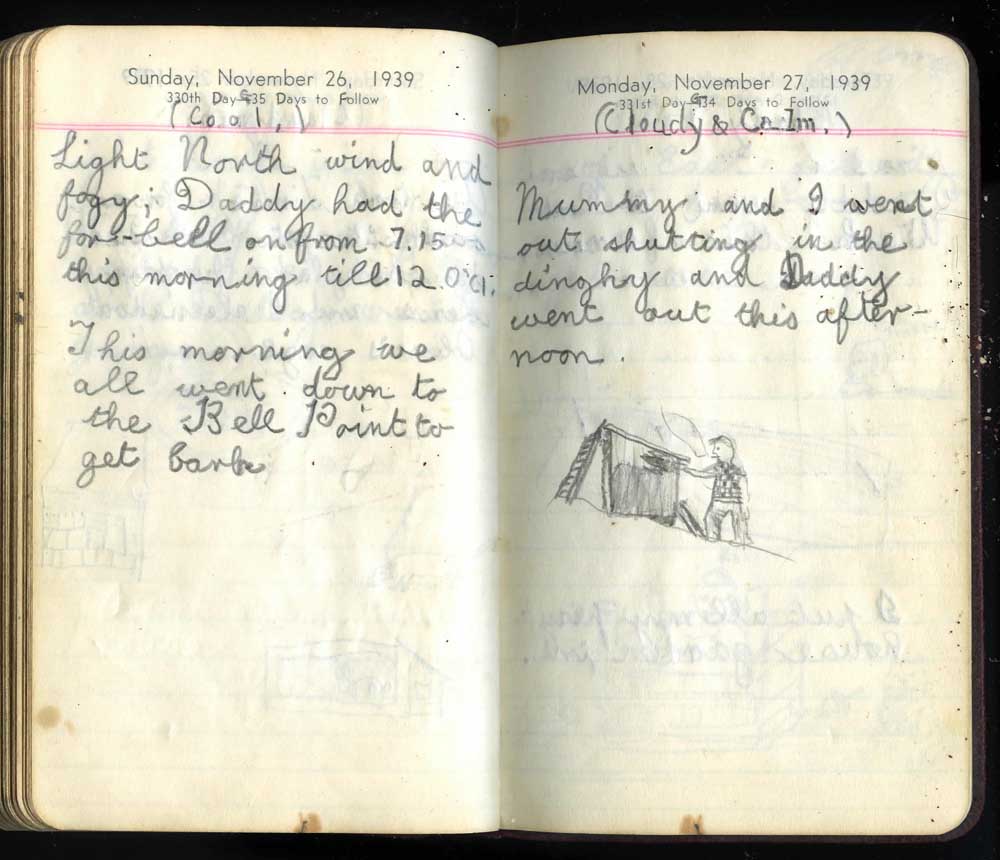 Sunday, November 26, 1939
330th Day 35 Days to Follow
(Coal,)
Light North wind and
fogy; Daddy had the
for-bell on from 7.15
this morning till 12.O'Cl.
This morning we
all went down to
the Bell Point to
get bark
Monday, November 27, 1939
331st Day 34 Days to Follow
(Cloudy & Calm.)
Mummy and I went
out shutting in the
dinghy and Daddy
went out this after-
noon.